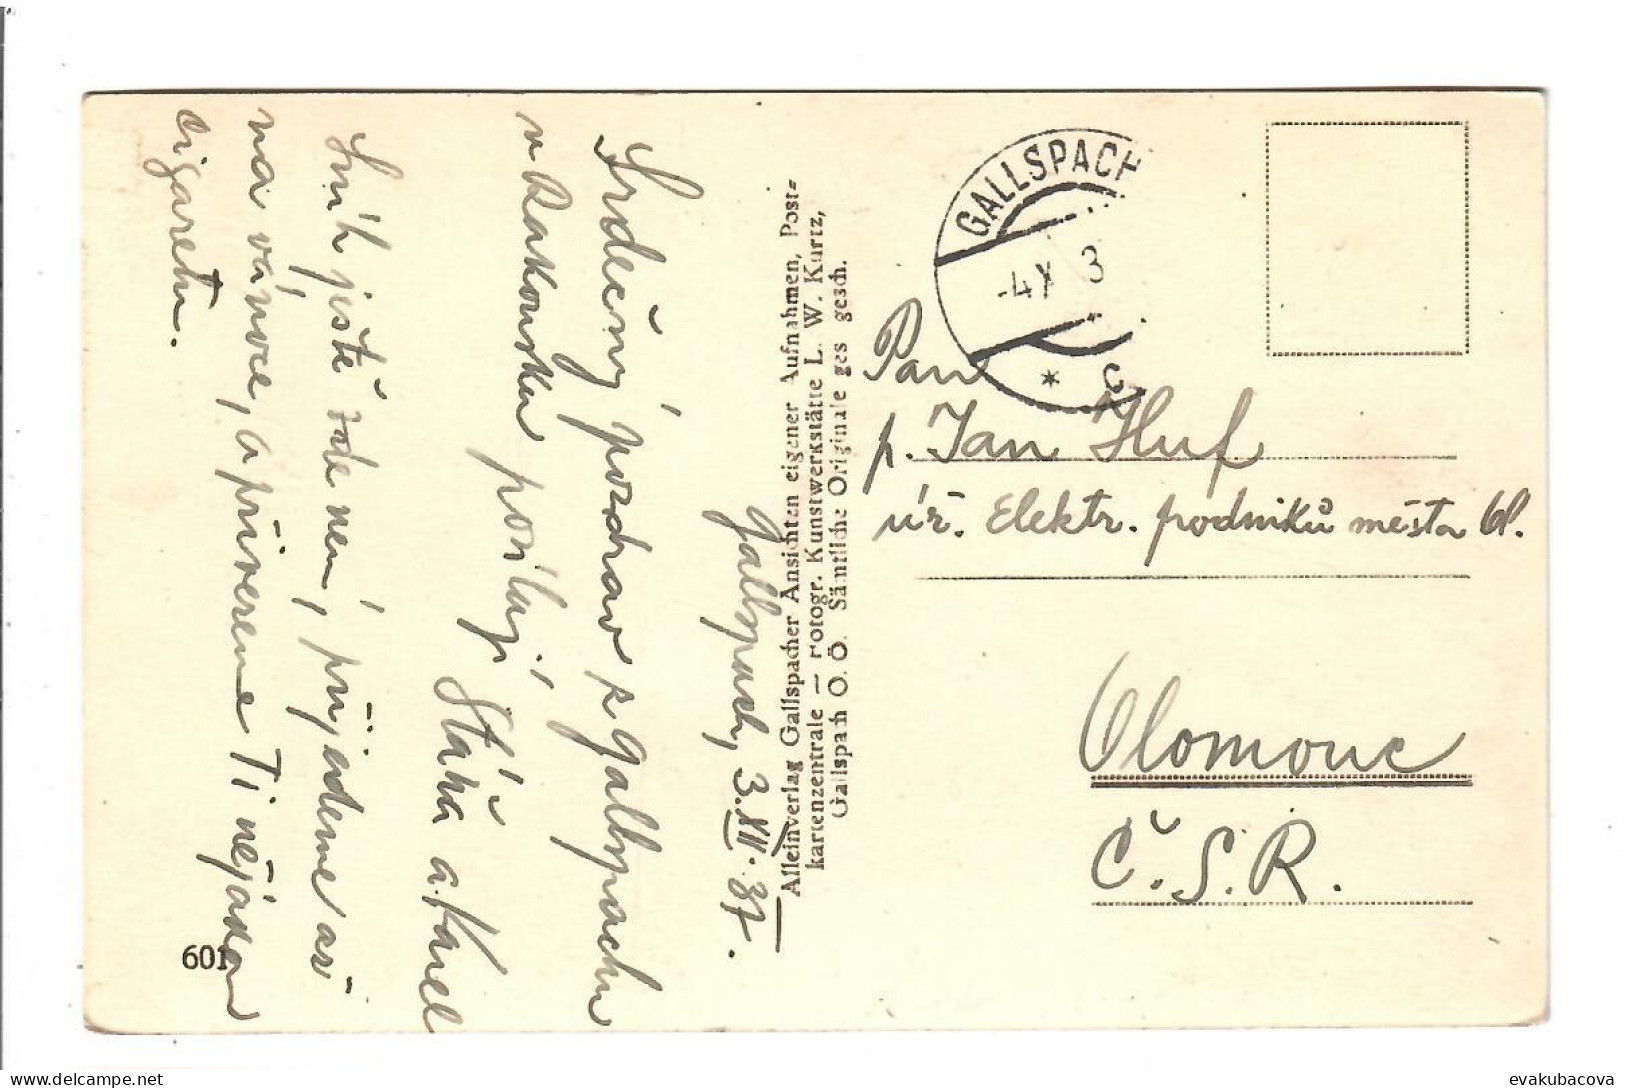 Gallspach, 3.XII.37.
Srdečný pozdrav z Gallspachu
v Rakousku posílají
Stáňa a Karel
Sníh ještě zde není, přijedeme asi
na vánoce, a přivezeme Ti nějakou
cigaretu.
601
Alleinverlag Gallspacher Ansichten eigener Aufnahmen, Post-
kartenzentrale — Fotogr. Kunstwerkstätte L. W. Kurtz,
Gallspach O. Ö. Sämtliche Originale ges gesch.
GALLSPACH
-4 X 3
* c
Pan
p. Jan Huf
úř. Elektr. podniků města Ol.
Olomouc
Č.S.R.
evakubacova